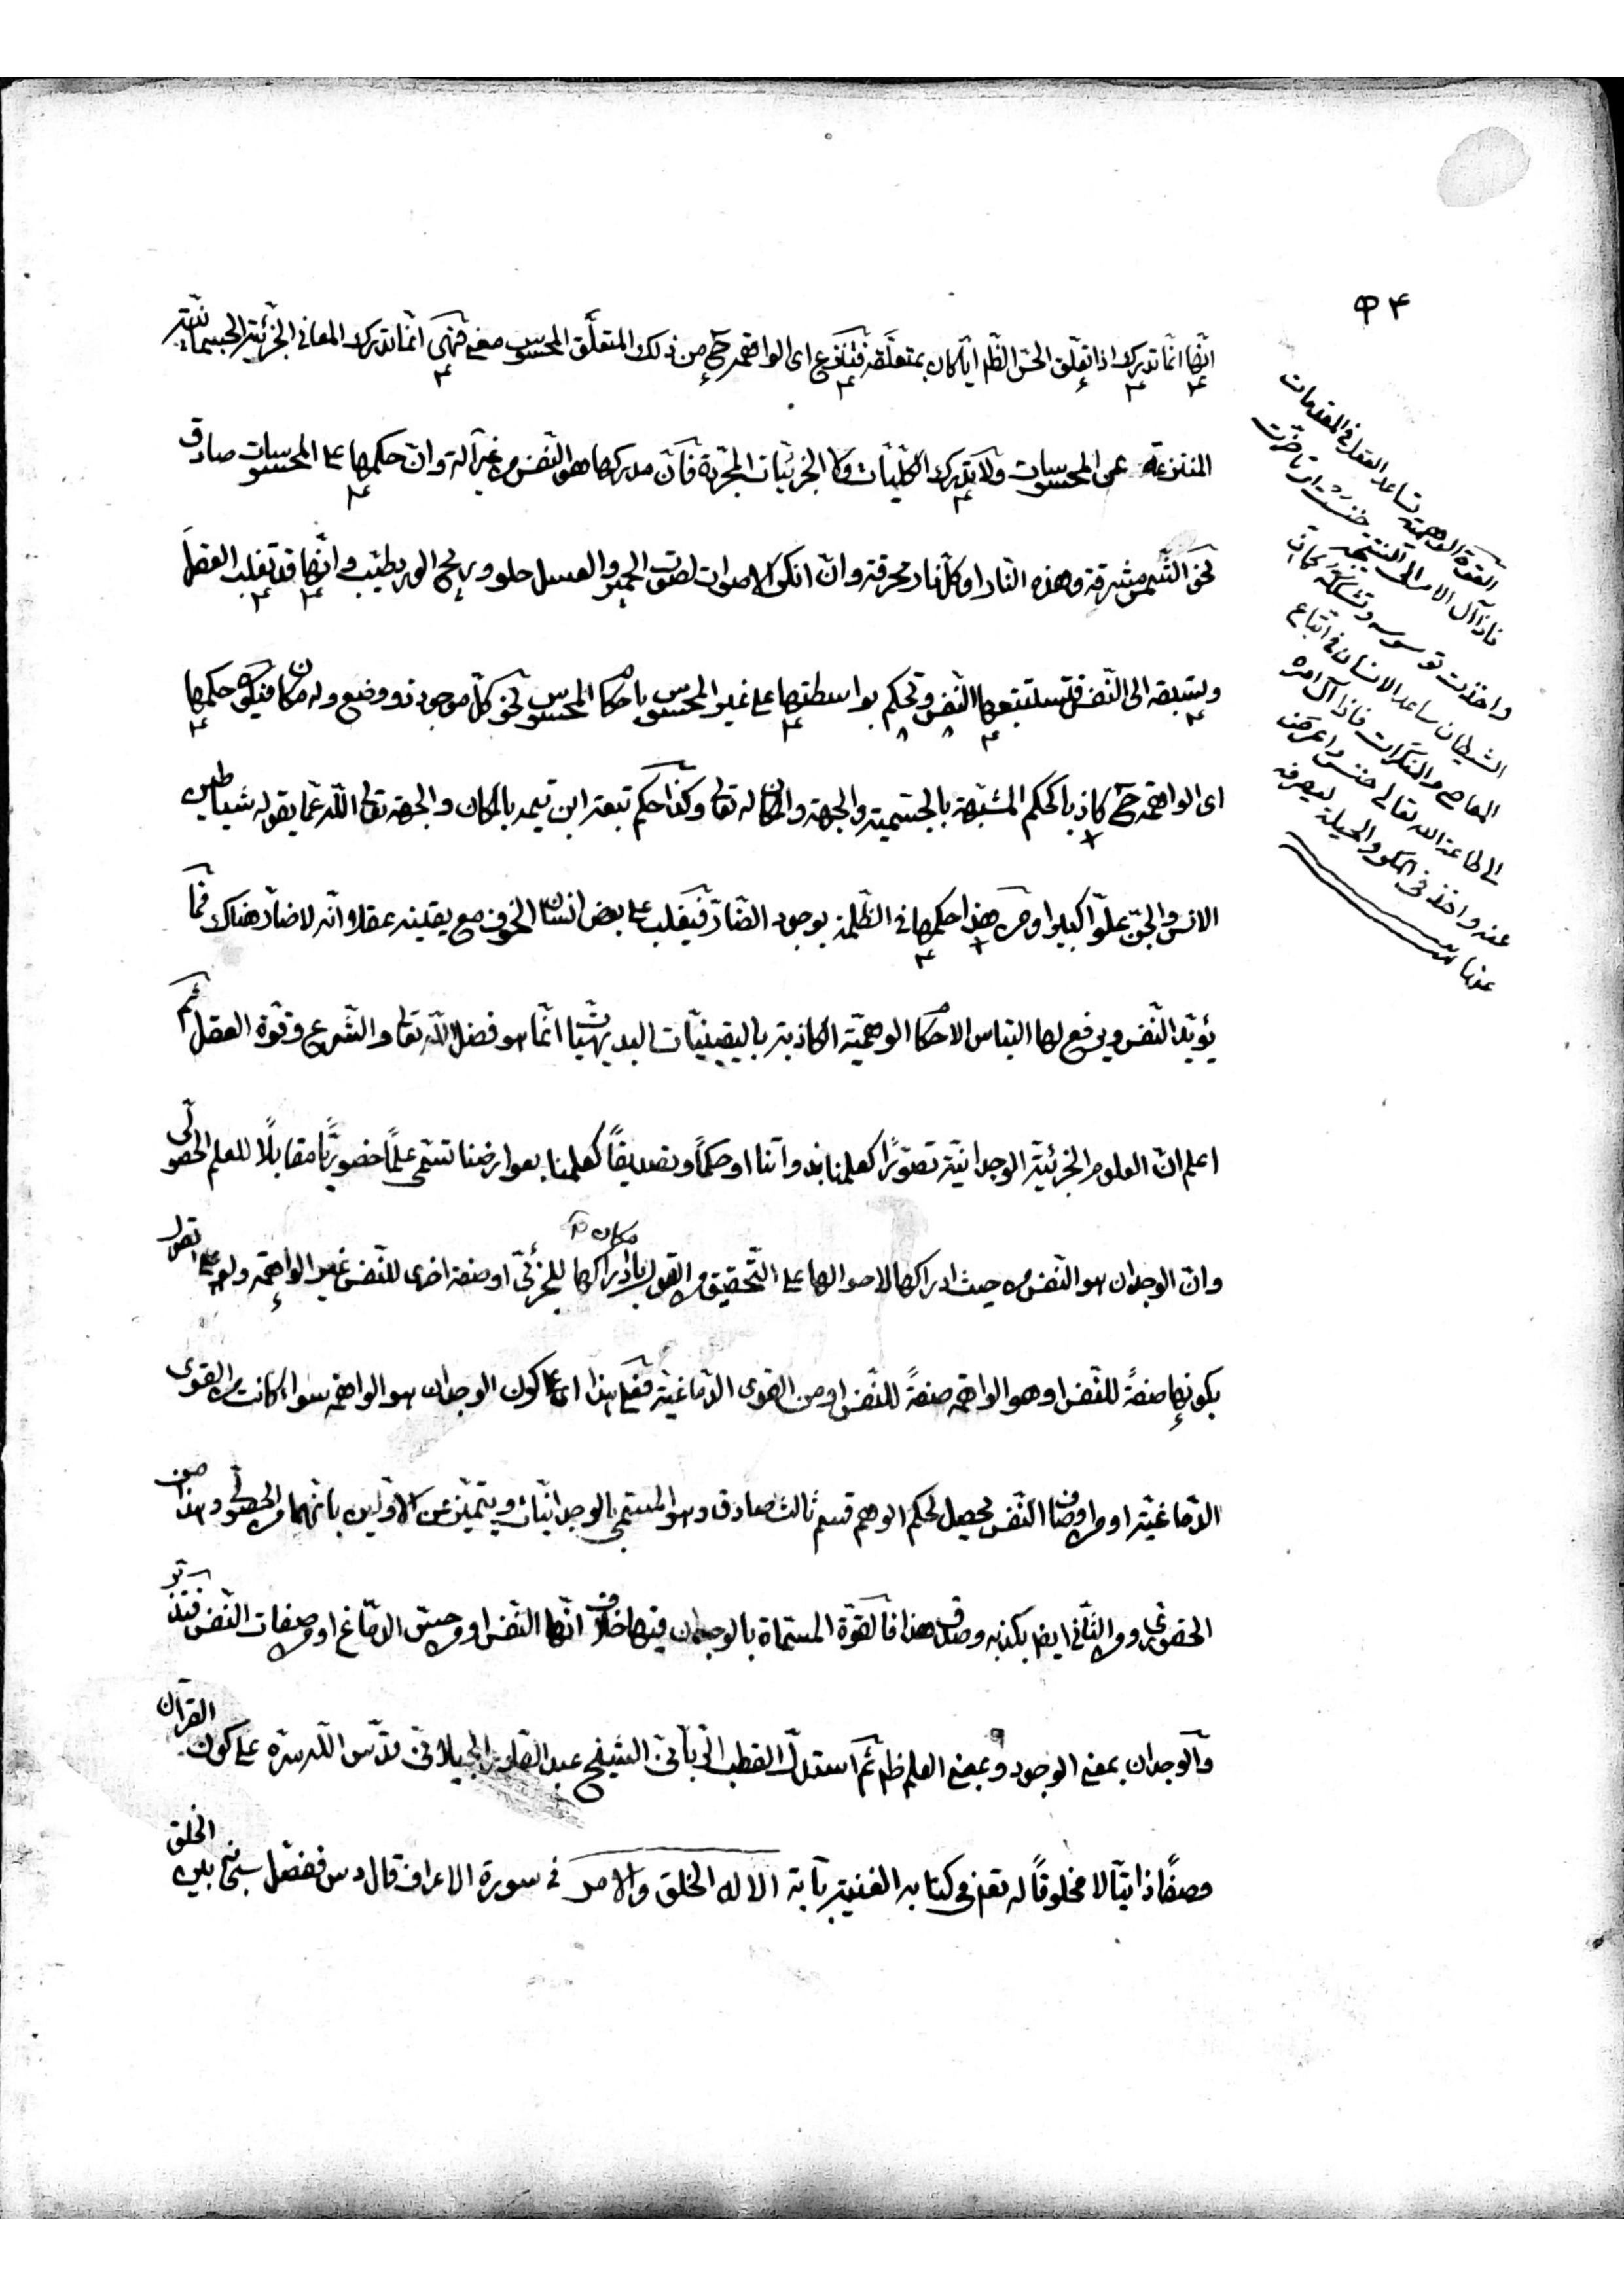 ٥٤
انّها انّما تدرك اذا تعلّق الحسّ الظّم ايّا كان بمتعلّقه فتنتزع اى الواهمة ح من ذلك المتعلّق المحسوس معنى فهى انّما تدرك المعانى الجزئيّة الجسمانيّة
المنتزعة عن المحسوسات ولا تدرك الكلّيّات ولا الجزئيّات المجرّدة فانّ مدركها هو النّفس من غير آلة وانّ حكمها على المحسوسات صادق
نحو الشّمس مشرقة وهذه النّار او كلّ نار محرقة وانّ انكر الاصوات لصوت الحمير والعسل حلو وريح الورد طيّب وانّها قد تغلب العقل
وتسبقه الى النّفس فتستتبعها النّفس وتحكم بواسطتها على غير المحسوس باحكام المحسوس نحو كلّ موجود ذو وضع وله مكان فيكون حكمها
اى الواهمة ح كاذبا كحكم المشبّهة بالجسمية والجهة والمكان له تعالى وكذا حكم تبعة ابن تيمية بالمكان والجهة تعالى اللّه عمّا يقوله شياطين
الانس والجنّ علوّا كبيرا ومن هذا حكمها فى الظّلمة بوجود الضّارّ فيغلب على بعض انسان الخوف مع يقينه عقلا وانّه لا ضارّ هناك فما
يؤيّد النّفس ويرفع لها التباس الاحكام الوهميّة الكاذبة باليقينيّات البديهيّات انّما هو فضل اللّه تعالى والشّرع وقوّة العقل ثم
اعلم انّ العلوم الجزئيّة الوجدانيّة تصوّرًا كعلمنا بذواتنا او حكمًا وتصديقًا كعلمنا بعوارضنا تسمّى علمًا حضوريًّا مقابلًا للعلم الحصولىّ
وانّ الوجدان هو النّفس من حيث ادراكها لاحوالها على التّحقيق من القول بادراكها للجزئىّ او صفة اخرى للنّفس غير الواهمة ولو على القول
بكونها صفةً للنّفس او هو الواهمة صفةً للنّفس او من القوى الدّماغيّة فعلى هذا اى على كون الوجدان هو الواهمة سواء كانت من القوى
الدّماغيّة او من اوصاف النّفس يحصل لحكم الوهم قسم ثالث صادق وهو المسمّى بالوجدانيّات ويتميّز عن الاوّلين بانّهما من الحصولىّ وهذا من
الحضورىّ ومن الثّانى ايضا بكذبه وصدق هذا فالقوّة المسمّاة بالوجدان فيها خلاف انّها النّفس او من حسّ الدّماغ او من صفات النّفس فتدبّر
والوجدان بمعنى الوجود وبمعنى العلم ظم ثم استدلّ القطب الرّبّانىّ الشيخ عبد القادر الجيلانىّ قدّس اللّه سرّه على كون القرآن
وصفًا ذاتيًّا لا مخلوقًا له تعالى فى كتابه الغنية بآية الا له الخلق والامر فى سورة الاعراف قال دس ففصّل سبحانه بين الخلق
القوة الوهمية تساعد العقل فى المقدمات
فاذا آل الامر الى النتيجة خنست اى تأخرت
واخذت توسوسه وتشككه كما انّ
الشيطان يساعد الانسان فى اتباع
المعاصى والمنكرات فاذا آل امره
الى طاعة الله تعالى خنس واعرض
عنه واخذ فى المكر والحيلة ليصرفه
عنها